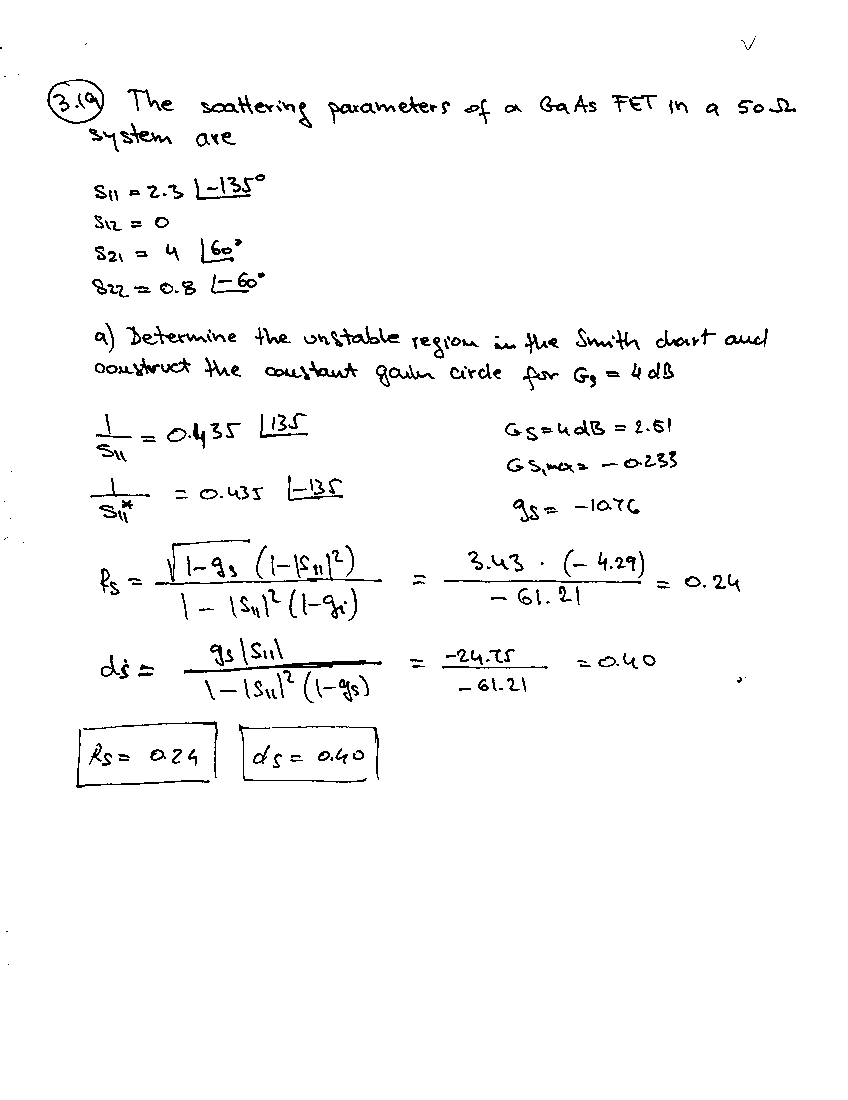 3.19 The scattering parameters of a GaAs FET in a 50 Ω
system are
S11 = 2.3 ∠-135°
S12 = 0
S21 = 4 ∠60°
S22 = 0.8 ∠-60°
a) Determine the unstable region in the Smith chart and
construct the constant gain circle for Gs = 4 dB
1/S11 = 0.435 ∠135
Gs = 4dB = 2.51
Gs,max = -0.233
1/S11* = 0.435 ∠-135
gs = -10.76
Rs = √(1-gs) (1-|S11|²) / (1 - |S11|² (1-gi)) = 3.43 · (-4.29) / -61.21 = 0.24
ds = gs |S11| / (1-|S11|² (1-gs)) = -24.75 / -61.21 = 0.40
Rs = 0.24 ds = 0.40